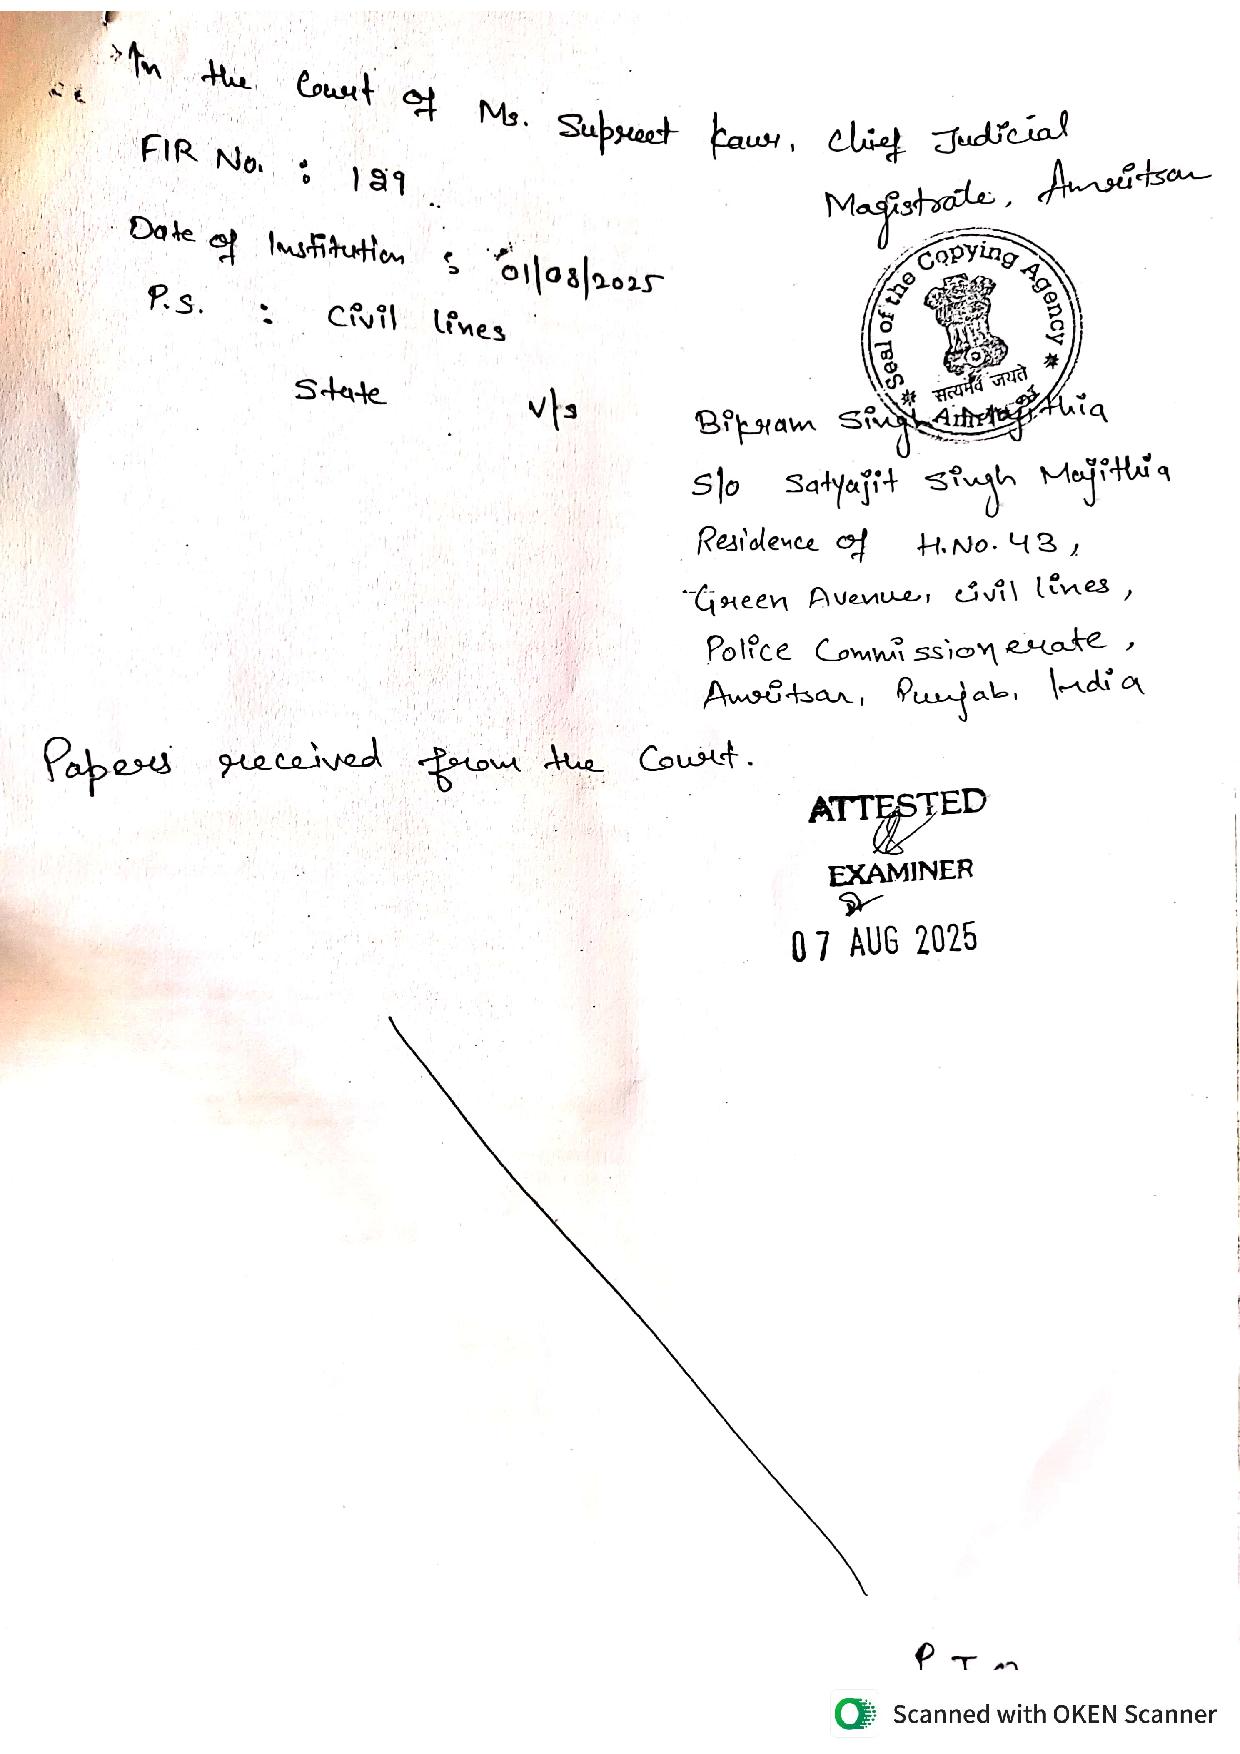 In the Court of Ms. Supreet Kaur, Chief Judicial
Magistrate, Amritsar
FIR No. : 129
Date of Institution : 01/08/2025
P.S. : Civil lines
Seal of the Copying Agency
सत्यमेव जयते
State v/s Bikram Singh Majithia
S/o Satyajit Singh Majithia
Residence of H.No. 43,
Green Avenue, Civil lines,
Police Commissionerate,
Amritsar, Punjab, India
Papers received from the Court.
ATTESTED
EXAMINER
07 AUG 2025
Scanned with OKEN Scanner